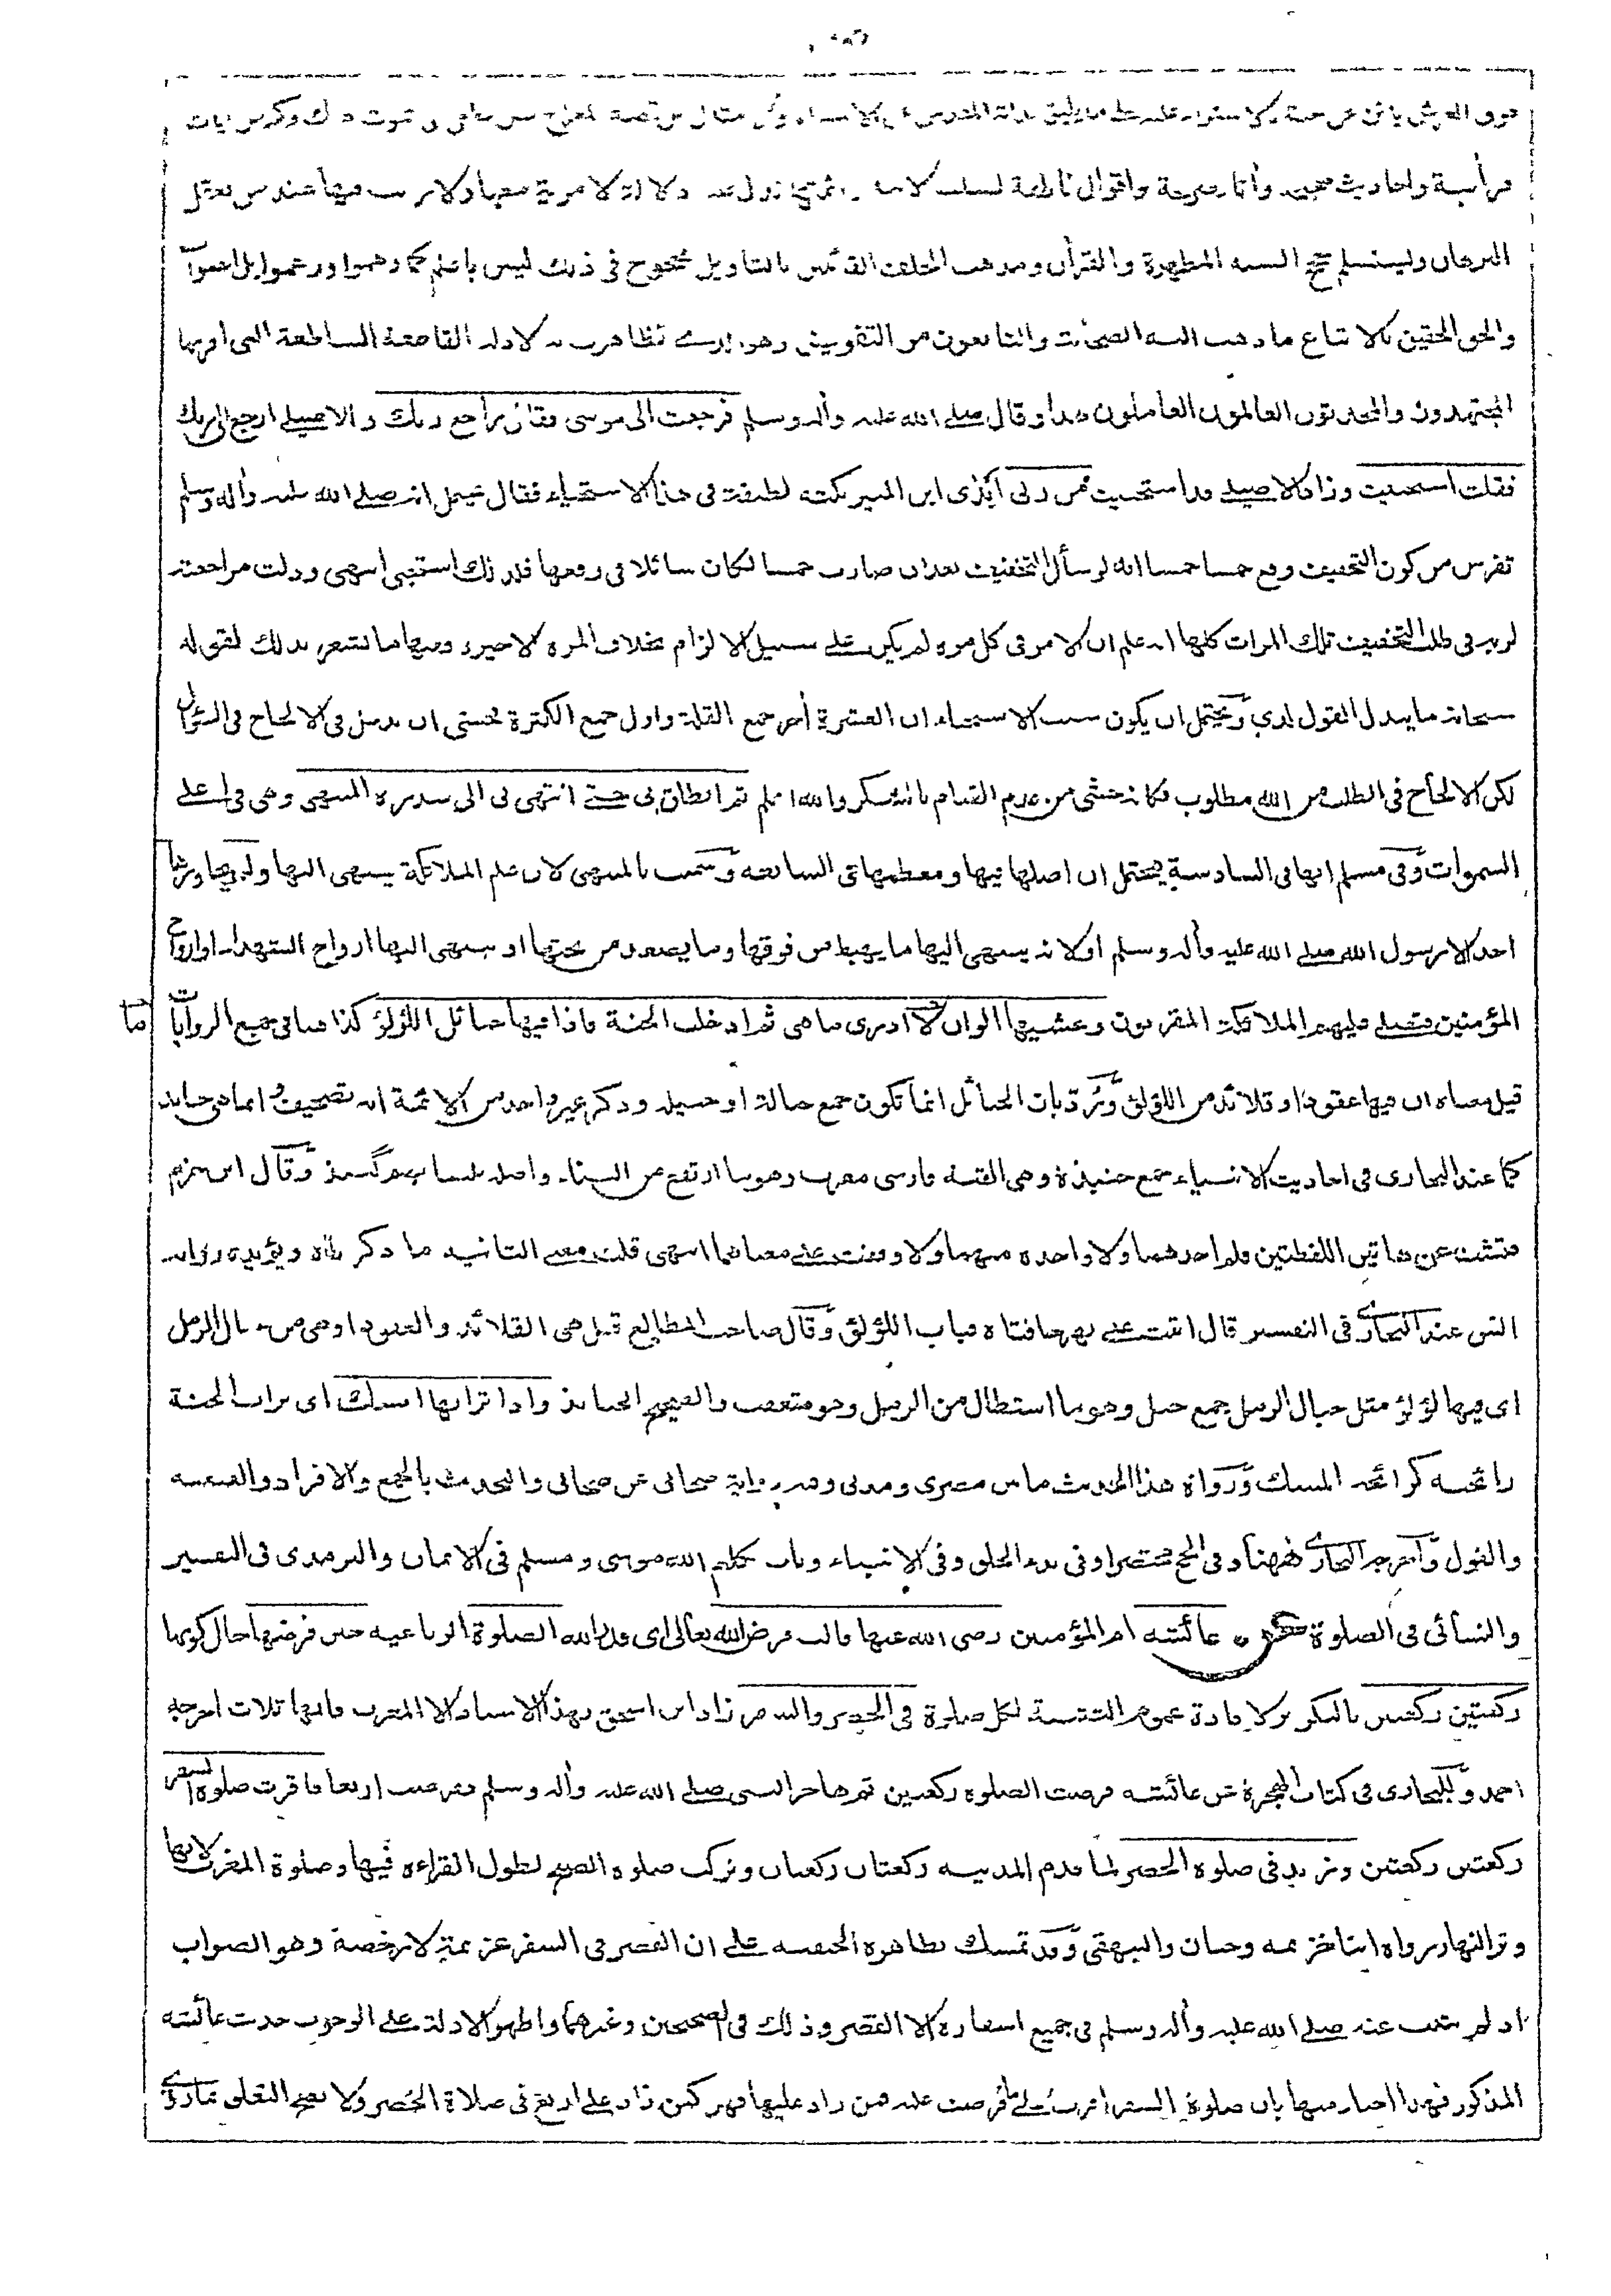 فوق العرش بائن عن خلقه
قرآنية واحاديث صحيحة وأثار صريحة واقوال ناطقة لسلف الامة دلالة لا مرية فيها ولا ريب فيها عند من يعقل
البرهان وليستسلم السنة المطهرة والقرآن ومذهب الخلف القائلين بالتاويل مجوح فى ذلك ليس باعلم كما وهموا وزعموا بل
والحق الحقيق بالاتباع ما ذهب اليه الصحابة والتابعون من التفويض وهو تظاهرت به الادلة القاطعة الساطعة التى أقر بها
المجتهدون والمحدثون العالمون العاملون هذا وقال صلى الله عليه وأله وسلم فرجعت الى موسى فقال راجع ربك وللاصيلى ارجع الى ربك
فقلت استحييت وزاد الاصيلى قد استحييت من ربى أبدى ابن المنير نكتة لطيفة فى هذا الاستحياء فقال يحتمل انه صلى الله عليه وأله وسلم
تفرس من كون التخفيف وقع خمسا خمسا انه لو سأل التخفيف بعد ان صارت خمسا لكان سائلا فى رفعها فلذلك استحيى انتهى ودلت مراجعته
لربه فى طلب التخفيف تلك المرات كلها انه علم ان الامر فى كل مرة لم يكن على سبيل الالزام بخلاف المرة الاخيرة ففيها ما يشعر بذلك لقوله
سبحانه ما يبدل القول لدي ويحتمل ان يكون سبب الاستحياء ان العشرة أخر جمع القلة واول جمع الكثرة فخشى ان يدخل فى الالحاح فى السؤال
لكن الالحاح فى الطلب من الله مطلوب فكانه خشى من عدم القيام بالشكر والله اعلم ثم انطلق بى حتى انتهى بى الى سدرة المنتهى وهى فى اعلى
السموات وفى مسلم انها فى السادسة فيحتمل ان اصلها فيها ومعظمها فى السابعة وسميت بالمنتهى لان علم الملائكة ينتهى اليها ولم يجاوزها
احد الا رسول الله صلى الله عليه وأله وسلم او لانه ينتهى اليها ما يهبط من فوقها وما يصعد من تحتها او ينتهى اليها ارواح الشهداء او ارواح
المؤمنين فتصلى عليهم الملائكة المقربون وغشيها الوان لا ادرى ما هى ثم ادخلت الجنة فاذا فيها حبائل اللؤلؤ كذا هنا فى جميع الروايات
قيل معناه ان فيها عقودا وقلائد من اللؤلؤ ورد بان الحبائل انما تكون جمع حبالة او حبيلة وذكر غير واحد من الائمة انه تصحيف وانما هى جنابذ
كما عند البخارى فى احاديث الانبياء جمع جنبذة وهى القبة فارسى معرب وهو ما ارتفع من البناء واصله بلسانهم گنبذ وقال ابن حزم
فتشت عن هاتين اللفظتين فلم اجدهما ولا واحدة منهما ولا وقفت على معناهما انتهى قلت معنى الثانية ما ذكرناه ويؤيده رواية
انس عند البخارى فى التفسير قال اتيت على نهر حافتاه قباب اللؤلؤ وقال صاحب المطالع قيل هى القلائد والعقود او هى من حبال الرمل
اى فيها لؤلؤ مثل حبال الرمل جمع حبل وهو ما استطال من الرمل وهو متعقب والصحيح الجنابذ واذا ترابها المسك اى تراب الجنة
رائحته كرائحة المسك ورواة هذا الحديث ما بين مصرى ومدنى وفيه رواية صحابى عن صحابى والتحديث بالجمع والافراد والعنعنة
والقول وأخرجه البخارى ههنا وفى الحج مختصرا وفى بدء الخلق وفى الانبياء وباب كلم الله موسى ومسلم فى الايمان والترمذى فى التفسير
والنسائى فى الصلوة عن عائشة ام المؤمنين رضى الله عنها قالت فرض الله تعالى اى قدر الله الصلوة الرباعية حين فرضها حال كونها
ركعتين ركعتين بالتكرير لافادة عموم التثنية لكل صلوة فى الحضر والسفر زاد ابن اسحق بهذا الاسناد الا المغرب فانها ثلاث اخرجه
احمد وللبخارى فى كتاب الهجرة عن عائشة فرضت الصلوة ركعتين ثم هاجر النبى صلى الله عليه وأله وسلم ففرضت اربعا فاقرت صلوة السفر
ركعتين ركعتين وزيد فى صلوة الحضر لما قدم المدينة ركعتان ركعتان وترك صلوة الصبح لطول القراءة فيها وصلوة المغرب لانها
وتر النهار رواه ابنا خزيمة وحبان والبيهقى وقد تمسك بظاهره الحنفية على ان القصر فى السفر عزيمة لا رخصة وهو الصواب
اذ لم يثبت عنه صلى الله عليه وأله وسلم فى جميع اسفاره الا القصر وذلك فى الصحيحين وغيرهما واظهر الادلة على الوجوب حديث عائشة
المذكور فهذا اخبار منها بان صلوة السفر اقرت على ما فرضت عليه فمن زاد عليها فهو كمن زاد على اربع فى صلاة الحضر ولا يصح التعلق